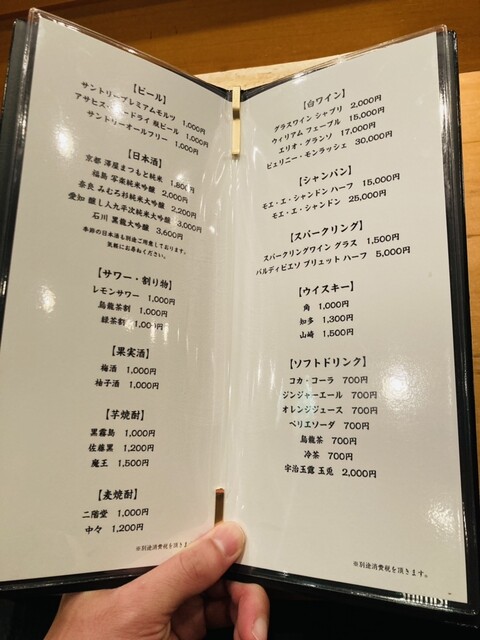 【ビール】
サントリープレミアムモルツ 1,000円
アサヒスーパードライ 瓶ビール 1,000円
サントリーオールフリー 1,000円
【日本酒】
京都 澤屋まつもと純米 1,800円
福島 写楽純米吟醸 2,000円
奈良 みむろ杉純米大吟醸 2,200円
愛知 醸し人九平次純米大吟醸 3,000円
石川 黒龍大吟醸 3,600円
季節の日本酒も別途ご用意しております。
気軽にお尋ねください。
【サワー・割り物】
レモンサワー 1,000円
烏龍茶割 1,000円
緑茶割 1,000円
【果実酒】
梅酒 1,000円
柚子酒 1,000円
【芋焼酎】
黒霧島 1,000円
佐藤黒 1,200円
魔王 1,500円
【麦焼酎】
二階堂 1,000円
中々 1,200円
※別途消費税を頂きます
【白ワイン】
グラスワイン シャブリ 2,000円
ウィリアム フェーブル 15,000円
エリオ・グランソ 17,000円
ピュリニー・モンラッシェ 30,000円
【シャンパン】
モエ・エ・シャンドン ハーフ 15,000円
モエ・エ・シャンドン 25,000円
【スパークリング】
スパークリングワイン グラス 1,500円
バルディビエソ ブリュット ハーフ 5,000円
【ウイスキー】
角 1,000円
知多 1,300円
山崎 1,500円
【ソフトドリンク】
コカ・コーラ 700円
ジンジャーエール 700円
オレンジジュース 700円
ペリエソーダ 700円
烏龍茶 700円
冷茶 700円
宇治玉露 玉兎 2,000円
※別途消費税を頂きます。